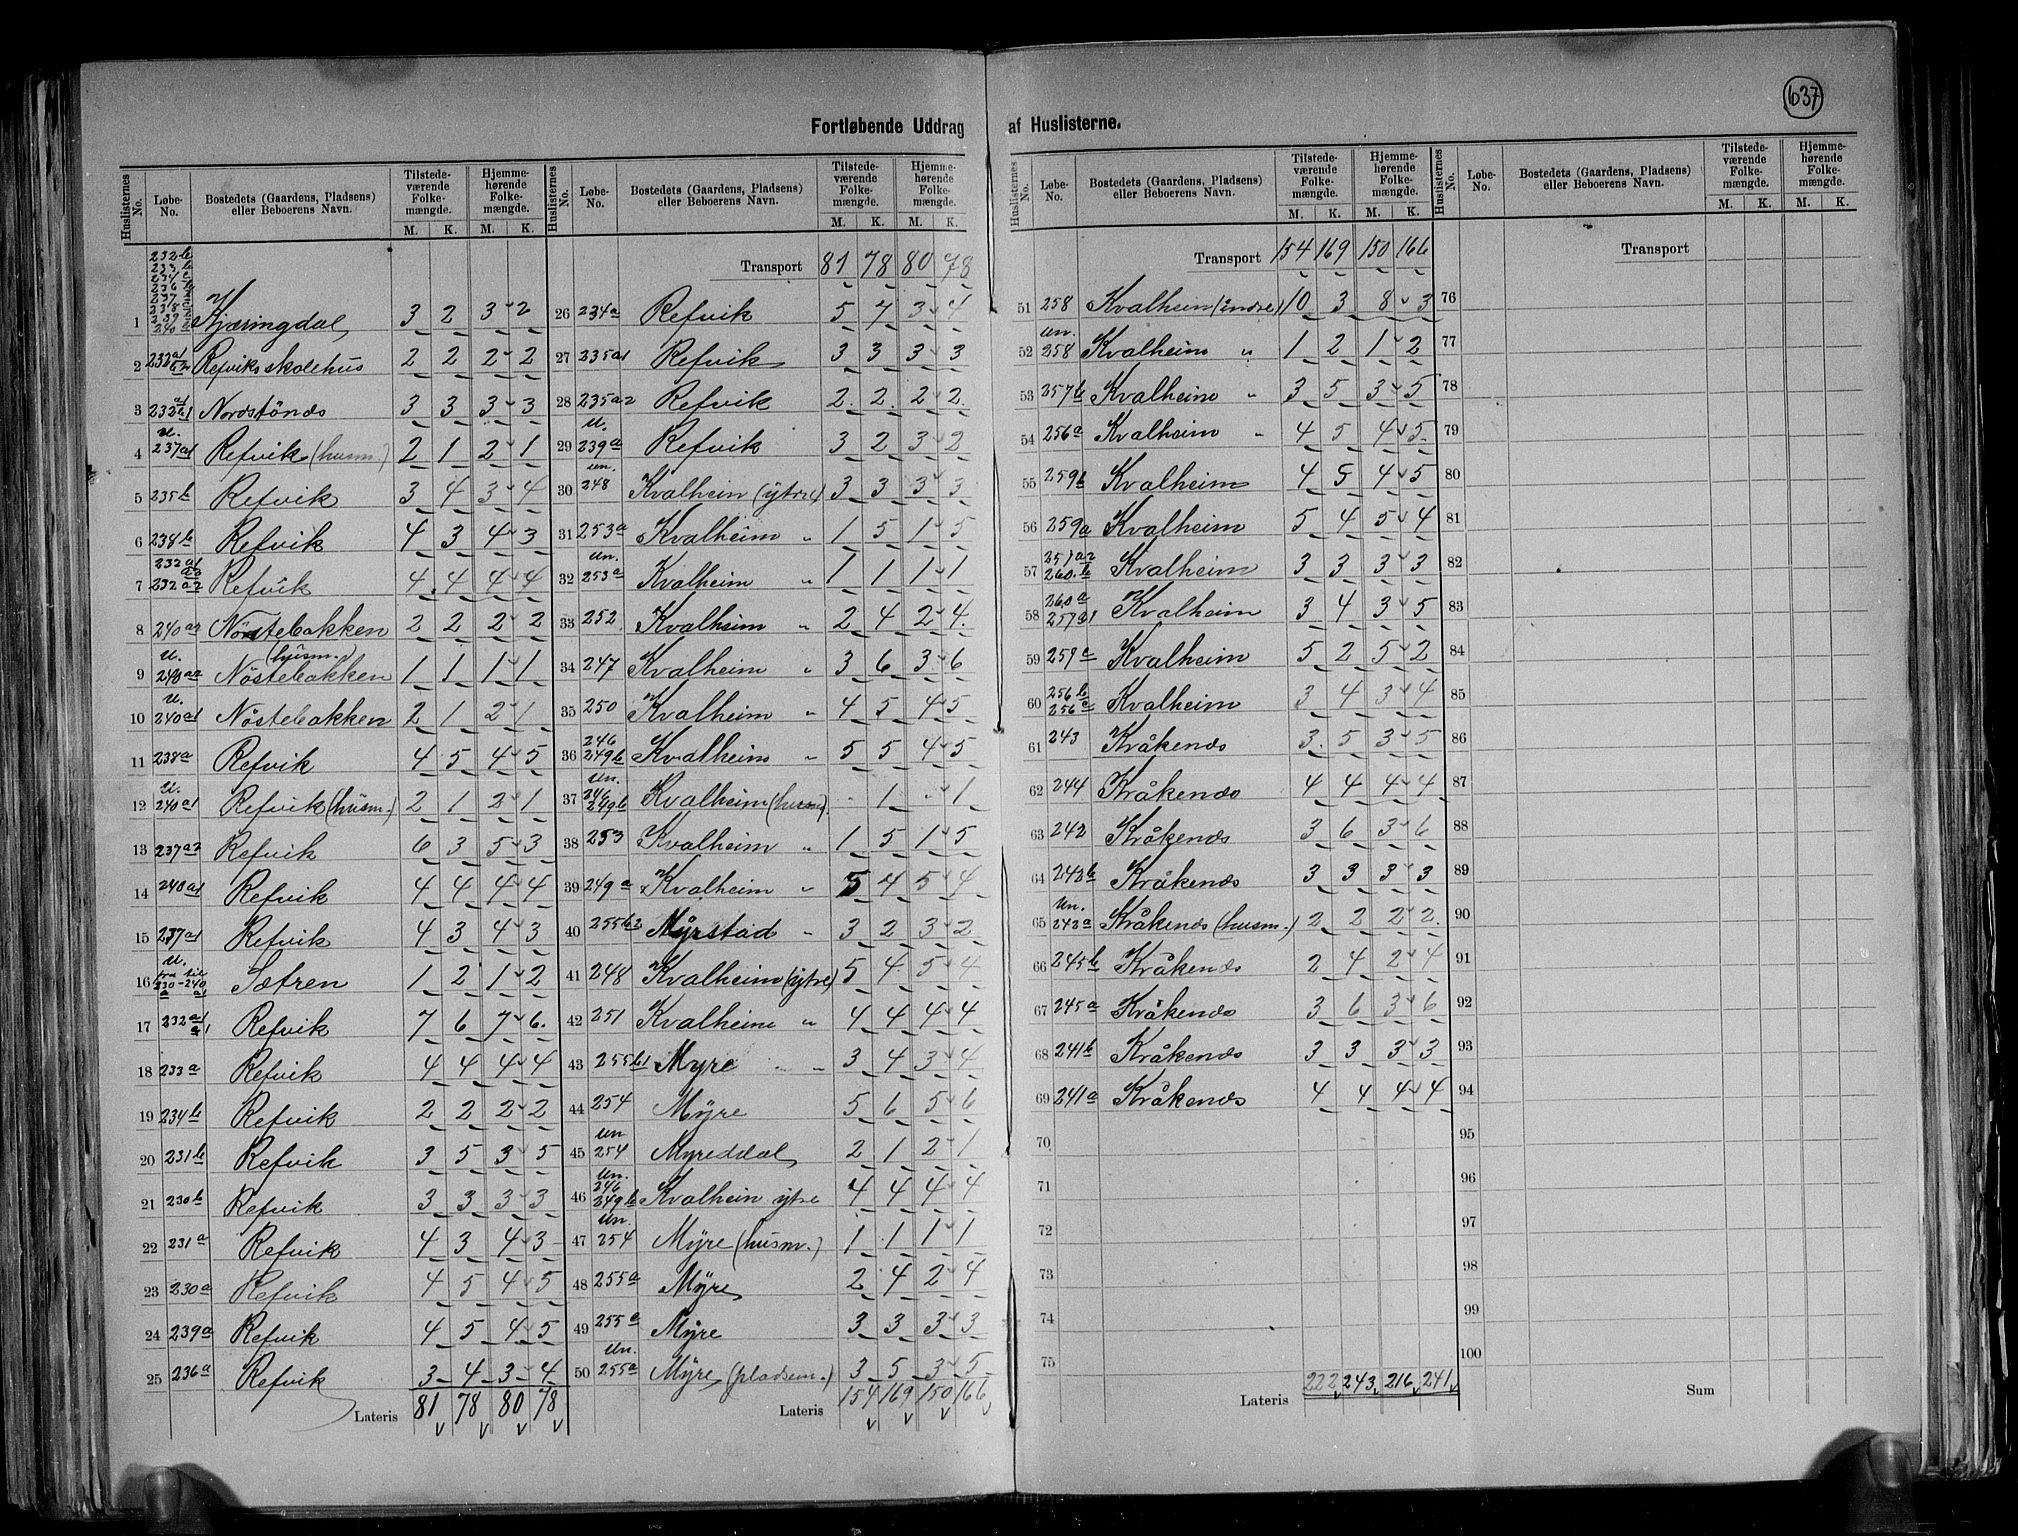 637
Fortløbende Uddrag af Huslisterne.
Huslisternes No. Løbe-No. Bostedets (Gaardens, Pladsens) eller Beboerens Navn. Tilstedeværende Folkemængde. M. K. Hjemmehørende Folkemængde. M. K.
232b 233b 234c 236b 237 238 239 240
1 Kjæringdal 3 2 3 2
2 232a1 Refviks skolehus 2 2 2 2
3 232a1 Nordstönds 3 3 3 3
4 U. 237a1 Refvik (husm.) 2 1 2 1
5 235b Refvik 3 4 3 4
6 238b Refvik 4 3 4 3
7 232a1 232a2 Refvik 4 4 4 4
8 240a2 Nöstebakken 2 2 2 2
9 U. 240a2 Nöstebakken (husm.) 1 1 1 1
10 U. 240a1 Nöstebakken 2 1 2 1
11 238a Refvik 4 5 4 5
12 U. 240a1 Refvik (husm.) 2 1 2 1
13 237a2 Refvik 6 3 5 3
14 240a1 Refvik 4 4 4 4
15 237a1 Refvik 4 3 4 3
16 U. fra til 230-240 a a1 Sætren 1 2 1 2
17 232a1 Refvik 7 6 7 6.
18 233a Refvik 4 4 4 4
19 234b Refvik 2 2 2 2
20 231b Refvik 3 5 3 5
21 230b Refvik 3 3 3 3
22 231a Refvik 4 3 4 3
23 230a Refvik 4 5 4 5
24 239a Refvik 4 5 4 5
25 236a Refvik 3 4 3 4
Lateris 81 78 80 78
Huslisternes No. Løbe-No. Bostedets (Gaardens, Pladsens) eller Beboerens Navn. Tilstedeværende Folkemængde. M. K. Hjemmehørende Folkemængde. M. K.
Transport 81 78 80 78
26 234a Refvik 5 7 3 4
27 235a1 Refvik 3 3 3 3
28 235a2 Refvik 2 2 2 2
29 U. 239a Refvik 3 2 3 2
30 un. 248 Kvalheim (ytre) 3 3 3 3
31 253a Kvalheim " 1 5 1 5
32 un. 253a Kvalheim " 1 1 1 1
33 252 Kvalheim " 2 4 2 4.
34 247 Kvalheim " 3 6 3 6
35 250 Kvalheim " 4 5 4 5
36 246 249b Kvalheim " 5 5 4 5
37 un. 246 249b Kvalheim (husm) - 1 - 1
38 253 Kvalheim " 1 5 1 5
39 249a Kvalheim " 5 4 5 4
40 255b2 Myrstad " 3 2 3 2
41 248 Kvalheim (ytre) 5 4 5 4
42 251 Kvalheim " 4 4 4 4
43 255b1 Myre " " 3 4 3 4
44 254 Myre 5 6 5 6
45 un 254 Myreddal 2 1 2 1
46 un. 246 249b Kvalheim ytre 4 4 4 4
47 un. 254 Myre (husm.) 1 1 1 1
48 255a Myre 2 4 2 4
49 255a Myre 3 3 3 3
50 un. 255a Myre (pladsem.) 3 5 3 5
Lateris 154 169 150 166
Huslisternes No. Løbe-No. Bostedets (Gaardens, Pladsens) eller Beboerens Navn. Tilstedeværende Folkemængde. M. K. Hjemmehørende Folkemængde. M. K.
Transport 154 169 150 166
51 258 Kvalheim (indre) 10 3 8 3
52 un. 258 Kvalheim " 1 2 1 2
53 257b Kvalheim " 3 5 3 5
54 256a Kvalheim " 4 5 4 5.
55 259b Kvalheim 4 5 4 5
56 259a Kvalheim 5 4 5 4
57 257a2 260b Kvalheim 3 3 3 3
58 260a 257a1 Kvalheim 3 4 3 5
59 259a Kvalheim 5 2 5 2
60 256b 256c Kvalheim 3 4 3 4
61 243 Kråkenæs 3 5 3 5
62 244 Kråkenæs 4 4 4 4
63 242 Kråkenæs 3 6 3 6
64 243b Kråkenæs 3 3 3 3
65 Un. 243a Kråkenæs (husm.) 2 2 2 2.
66 245b Kråkenæs 2 4 2 4
67 245a Kråkenæs 3 6 3 6
68 241b Kråkenæs 3 3 3 3
69 241a Kråkenæs 4 4 4 4
70
71
72
73
74
75
Lateris 222 243 216 241
Huslisternes No. Løbe-No. Bostedets (Gaardens, Pladsens) eller Beboerens Navn. Tilstedeværende Folkemængde. M. K. Hjemmehørende Folkemængde. M. K.
Transport
76
77
78
79
80
81
82
83
84
85
86
87
88
89
90
91
92
93
94
95
96
97
98
99
100
Sum